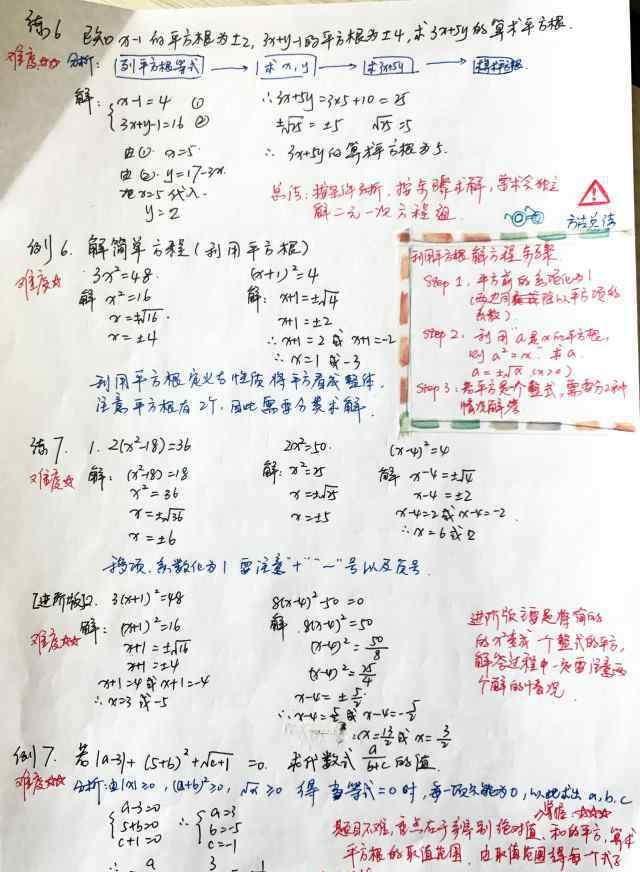 练6 已知 x-1 的平方根为±2, 3x+y-1的平方根为±4, 求 3x+5y 的算术平方根.
难度☆☆ 分析: 列平方根等式 → 求x,y → 求3x+5y → 算术平方根
解: { x-1=4 ①
3x+y-1=16 ②
由①. x=5.
由②. y=17-3x.
把x=5代入.
y=2
∴3x+5y=3×5+10=25
±√25=±5 √25=5
∴ 3x+5y的算术平方根为5.
总结: 按条件分析, 按步骤求解, 需术会独立
解二元一次方程组.
方法总结
例6. 解简单方程(利用平方根)
难度☆
3x²=48.
解 x²=16
x=±√16.
x=±4
(x+1)²=4
解: x+1=±√4
x+1=±2
∴x+1=2或x+1=-2
∴x=1或-3
利用平方根定义与性质将平方看成整体.
注意平方根有2个, 因此需要分类求解.
利用平方根解方程步骤.
Step 1. 平方前的系数化为1
(两边同除以平方项的
系数)
Step 2. 利用"a是x的平方根,
则 a²=x" 求a.
a=±√x (x>0)
Step 3: 若平方是个整式, 需要分2种
情况解答
练7. 1. 2(x²-18)=36
难度☆ 解: (x²-18)=18
x²=36
x=±√36
x=±6
2x²=50.
解: x²=25
x=±√25
x=±5
(x-4)²=4
解 x-4=±√4
x-4=±2
x-4=2或x-4=-2.
∴x=6或2
移项. 系数化为1 要注意"+""-"号以及负号.
[进阶版]2. 3(x+1)²=48
难度☆☆ 解: (x+1)²=16
x+1=±√16
x+1=±4
x+1=4或x+1=-4
∴x=3或-5
8(x-4)²-50=0
解. 8(x-4)²=50
(x-4)²=50/8
(x-4)²=25/4
x-4=±5/2
∴x-4=5/2或x-4=-5/2
∴x=13/2或x=3/2
进阶版主要是将简单的
的x变成一个整式的平方,
解答过程中一定要注意两
个解的情况.
例7. 若|a-3|+(5+b)²+√c+1=0. 求代数式 a/b+c 的值.
难度☆☆ 分析: 由|x|≥0, (a+b)²≥0, √x≥0 得 当等式=0时, 每一项只能为0, 以此求出 a,b,c
{ a-3=0
5+b=0
c+1=0
∴ { a=3
b=-5
c=-1
掌握: ☆☆☆
题目不难, 重点在于弄得到绝对值、和的平方, 算术
平方根的取值范围. 由取值范围得每一个式子